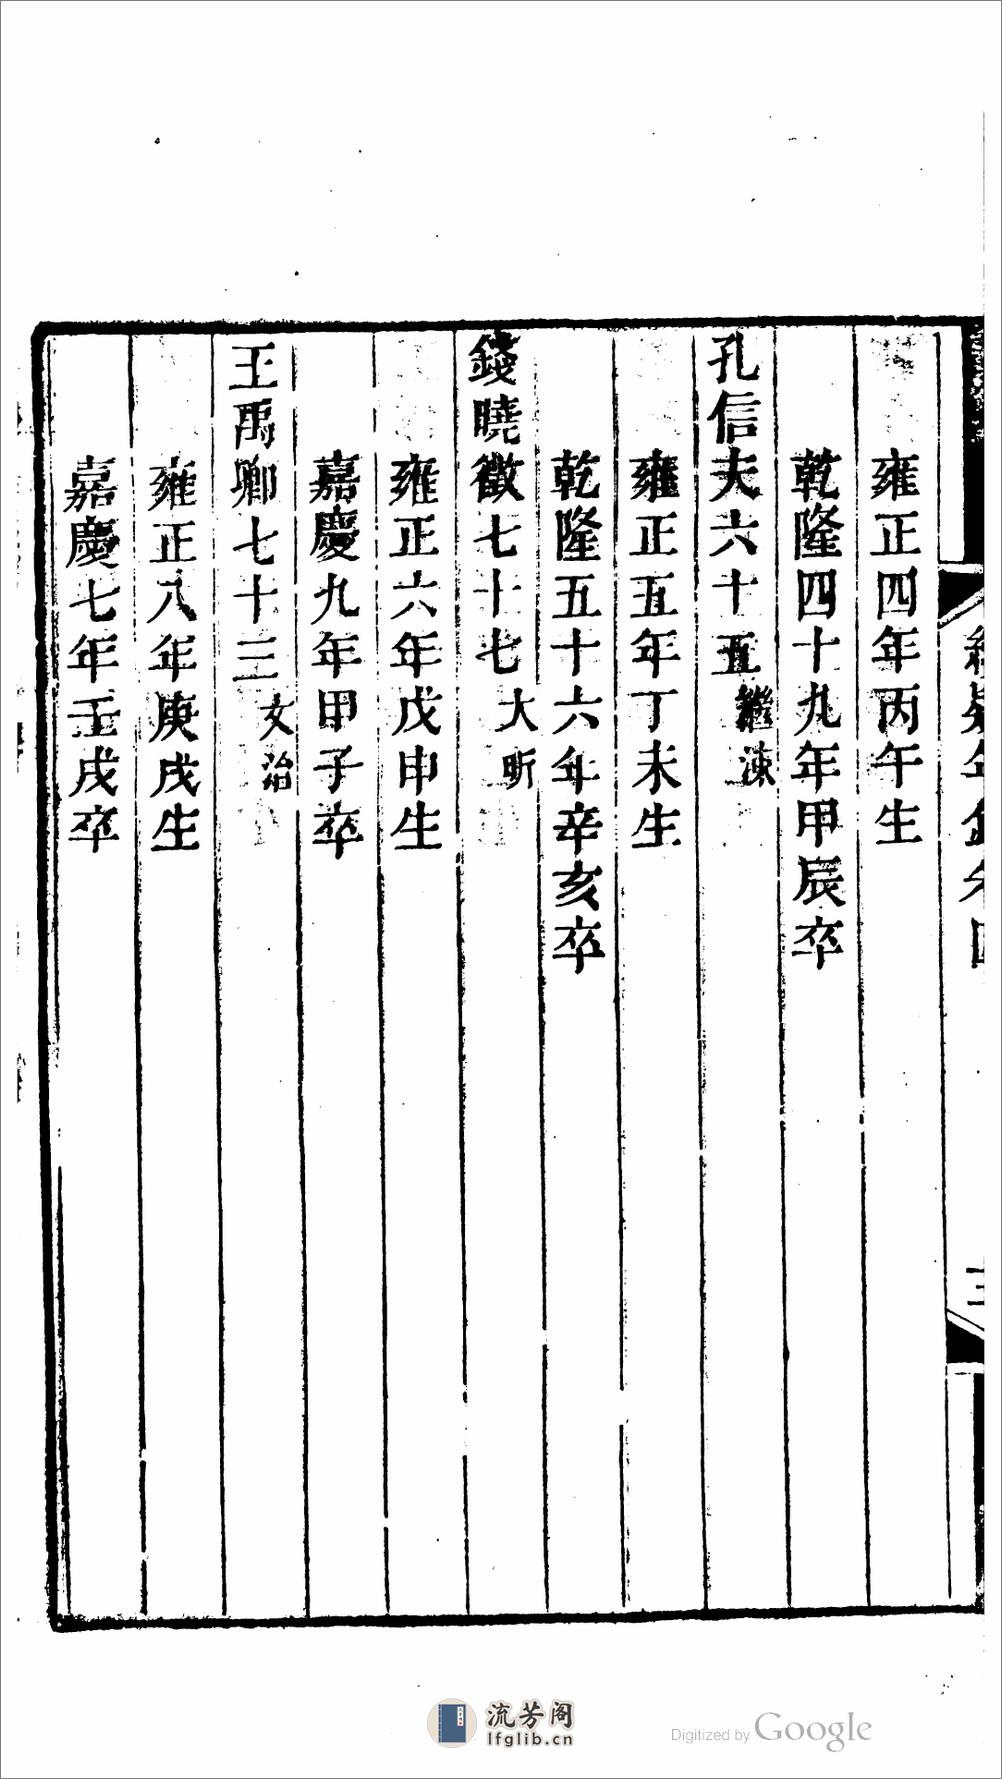 雍正四年丙午生
乾隆四十九年甲辰卒
孔信夫六十五繼涑
雍正五年丁未生
乾隆五十六年辛亥卒
錢曉徵七十七大昕
雍正六年戊申生
嘉慶九年甲子卒
王禹卿七十三文治
雍正八年庚戌生
嘉慶七年壬戌卒
流芳阁
lfglib.cn
Digitized by Google